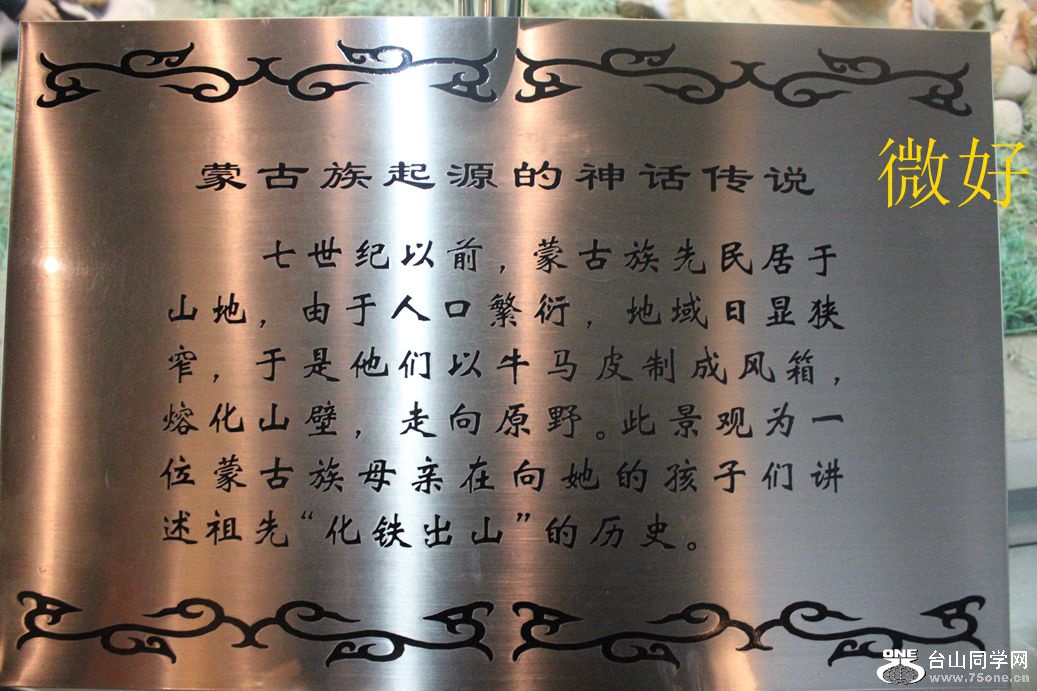 蒙古族起源的神话传说
微好
七世纪以前，蒙古族先民居于
山地，由于人口繁衍，地域日显狭
窄，于是他们以牛马皮制成风箱，
熔化山壁，走向原野。此景观为一
位蒙古族母亲在向她的孩子们讲
述祖先“化铁出山”的历史。
ONE 台山同学网
www.75one.cn